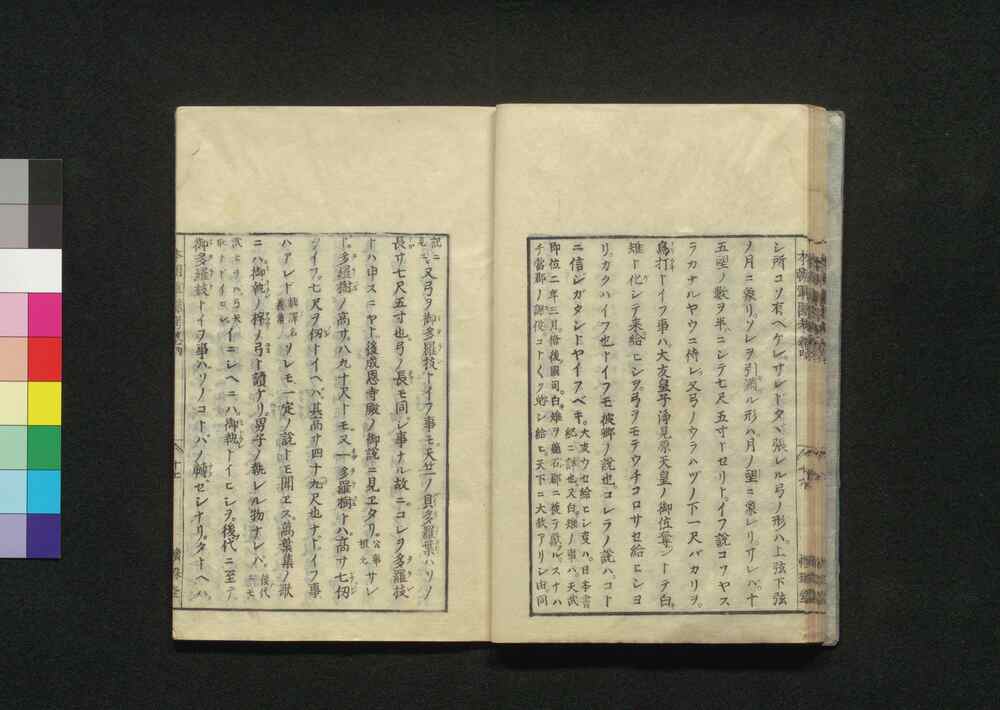 シ所コソ有ヘケレサレトタヽ張レル弓ノ形ハ上弦下弦
ノ月ニ象リソレヲ引満ル形ハ月ノ望ニ象レリサレハ十
五望ノ数ヲ半ニシテ七尺五寸トセリトイフ説コソヤス
ラカナルヤウニ侍レ又弓ノウラハヅノ下一尺バカリヲ
鳥打トイフ事ハ大友皇子浄見原天皇ノ御位争ントテ白
雉ト化シテ来給ヒシヲ弓ヲモテウチコロサセ給ヒシヨ
リカクハイフ也トイフモ彼郷ノ説也コレラノ説ハコト
ニ信シガタシトヤイフベキ
大友ウセ給ヒシ事ハ日本書
紀ニ詳也又白雉ノ事ハ天武
即位二年三月備後国司白雉ヲ亀石郡ニ獲テ献ルスナハ
チ當郡ノ課役コトくク免シ給ヒ天下ニ大赦アリシ由同
記ニ
見ユ
又弓ヲ御多羅枝トイフ事モ天竺ノ貝多羅葉ハリノ
長サ七尺五寸也弓ノ長モ同シ事ナル故ニコレヲ多羅枝
トハ申スニヤト後成恩寺殿ノ御説ニ見エタリ
サレ
ト多羅樹ノ高サハ九十尺トモ又一多羅樹トハ高サ七仞
ヲイフ七尺ヲ仞トイヘハ其高サ四十九尺也ナトイフ事
ハアレド
翻譯名
義集
ソレモ一定ノ説トモ聞エス萬葉集ノ歌
ニハ御執ノ梓ノ弓ト讀ケリ男子ノ執レル物ナレバ
後代
イニシヘニハ御執トイヒシヲ後代ニ至テ
御多羅枝トイヲ事ハソノコトバノ轉セシナリタトヘハ